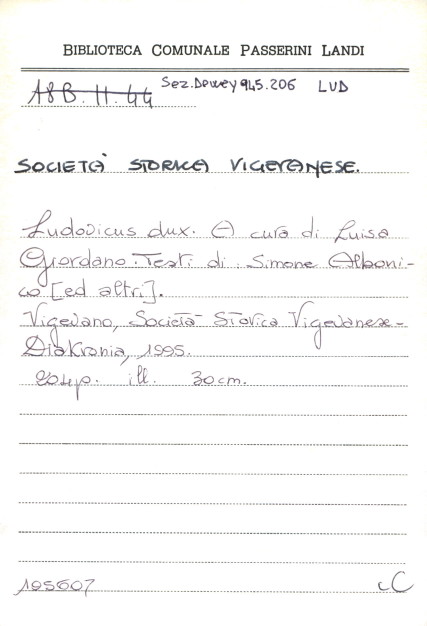 BIBLIOTECA COMUNALE PASSERINI LANDI
A8B.11.44 Sez.Dewey 945.206 LUD
SOCIETÀ STORICA VIGEVANESE.
Ludovicus dux. A cura di Luisa
Giordano. Testi di Simone Alboni-
co [ed altri].
Vigevano, Società Storica Vigevanese-
Diakronia, 1995.
204p. ill. 30cm.
195607